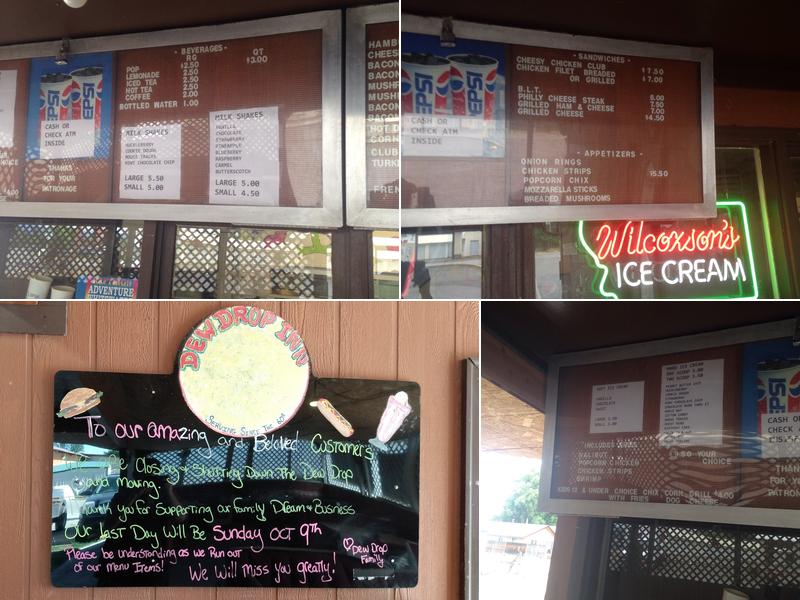 - BEVERAGES -
RG QT
POP $2.50 $3.00
LEMONADE 2.50
ICED TEA 2.50
HOT TEA 2.50
COFFEE 2.00
BOTTLED WATER 1.00
PEPSI
CASH OR
CHECK ATM
INSIDE
THANKS
FOR YOUR
PATRONAGE
MILK SHAKES
HUCKLEBERRY
COOKIE DOUGH
MOOSE TRACKS
MINT CHOCOLATE CHIP
LARGE 5.50
SMALL 5.00
MILK SHAKES
VANILLA
CHOCOLATE
STRAWBERRY
PINEAPPLE
BLUEBERRY
RASPBERRY
CARMEL
BUTTERSCOTCH
LARGE 5.00
SMALL 4.50
HAMB
CHEES
BACON
BACON
MUSH
BACON
MUSH
HOT D
CORN
CLUB
TURK
FREN
ADVENTURE
PEPSI
CASH OR
CHECK ATM
INSIDE
- SANDWICHES -
CHEESY CHICKEN CLUB $7.50
CHICKEN FILET BREADED $7.00
OR GRILLED
B.L.T. 6.00
PHILLY CHEESE STEAK 8.00
GRILLED HAM & CHEESE 7.50
GRILLED CHEESE 7.00
$4.50
- APPETIZERS -
ONION RINGS
CHICKEN STRIPS $5.50
POPCORN CHIX
MOZZARELLA STICKS
BREADED MUSHROOMS
Wilcoxson's
ICE CREAM
DEW DROP INN
SERVING SINCE THE 60s
To our amazing and Beloved Customers
Closing & Shutting Down The Dew Drop
and Moving.
Thank you for Supporting our family Dream & Business
Our Last Day Will Be Sunday Oct 9th
Please be understanding as we Run out
of our Menu Items!
We Will miss you greatly!
Dew Drop
Family
SOFT ICE CREAM
VANILLA
CHOCOLATE
TWIST
HARD ICE CREAM
"INCLUDES FRIES
HALIBUT
POPCORN CHICKEN
CHICKEN STRIPS
SHRIMP
YOUR
CHOICE
KIDS 12 & UNDER CHOICE CHIX, CORN, GRILL $4.00
WITH FRIES DOG CHEESE
PEPSI
CASH O
CHECK
THAN
FOR Y
PATRON